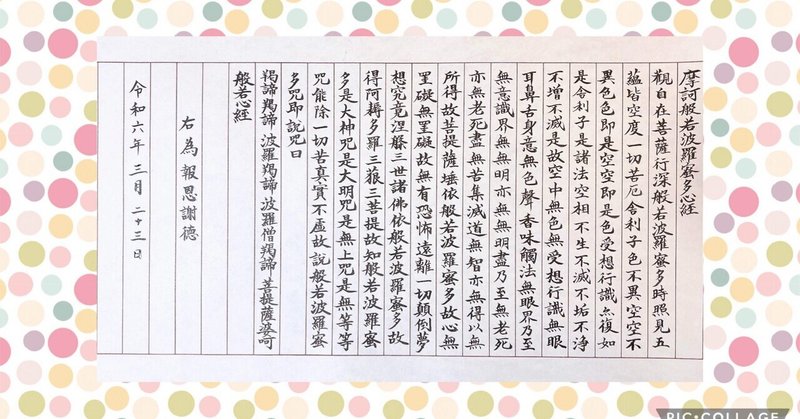 摩訶般若波羅蜜多心経
觀自在菩薩行深般若波羅蜜多時照見五
蘊皆空度一切苦厄舎利子色不異空空不
異色色即是空空即是色受想行識亦復如
是舎利子是諸法空相不生不滅不垢不浄
不増不減是故空中無色無受想行識無眼
耳鼻舌身意無色聲香味觸法無眼界乃至
無意識界無無明亦無無明盡乃至無老死
亦無老死盡無苦集滅道無智亦無得以無
所得故菩提薩埵依般若波羅蜜多故心無
罣礙無罣礙故無有恐怖遠離一切顛倒夢
想究竟涅槃三世諸佛依般若波羅蜜多故
得阿耨多羅三藐三菩提故知般若波羅蜜
多是大神咒是大明咒是無上咒是無等等
咒能除一切苦真實不虚故説般若波羅蜜
多咒即説咒曰
羯諦羯諦 波羅羯諦 波羅僧羯諦 菩提薩婆呵
般若心経
右為報恩謝徳
令和六年三月二十三日
PIC•COLLAGE